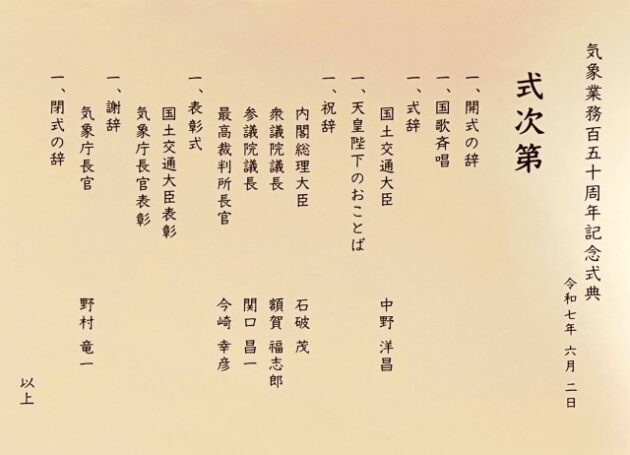 気象業務百五十周年記念式典
令和七年 六月 二日
式次第
一、開式の辞
一、国歌斉唱
一、式辞
国土交通大臣 中野 洋昌
一、天皇陛下のおことば
一、祝辞
内閣総理大臣 石破 茂
衆議院議長 額賀 福志郎
参議院議長 関口 昌一
最高裁判所長官 今崎 幸彦
一、表彰式
国土交通大臣表彰
気象庁長官表彰
一、謝辞
気象庁長官 野村 竜一
一、閉式の辞
以上